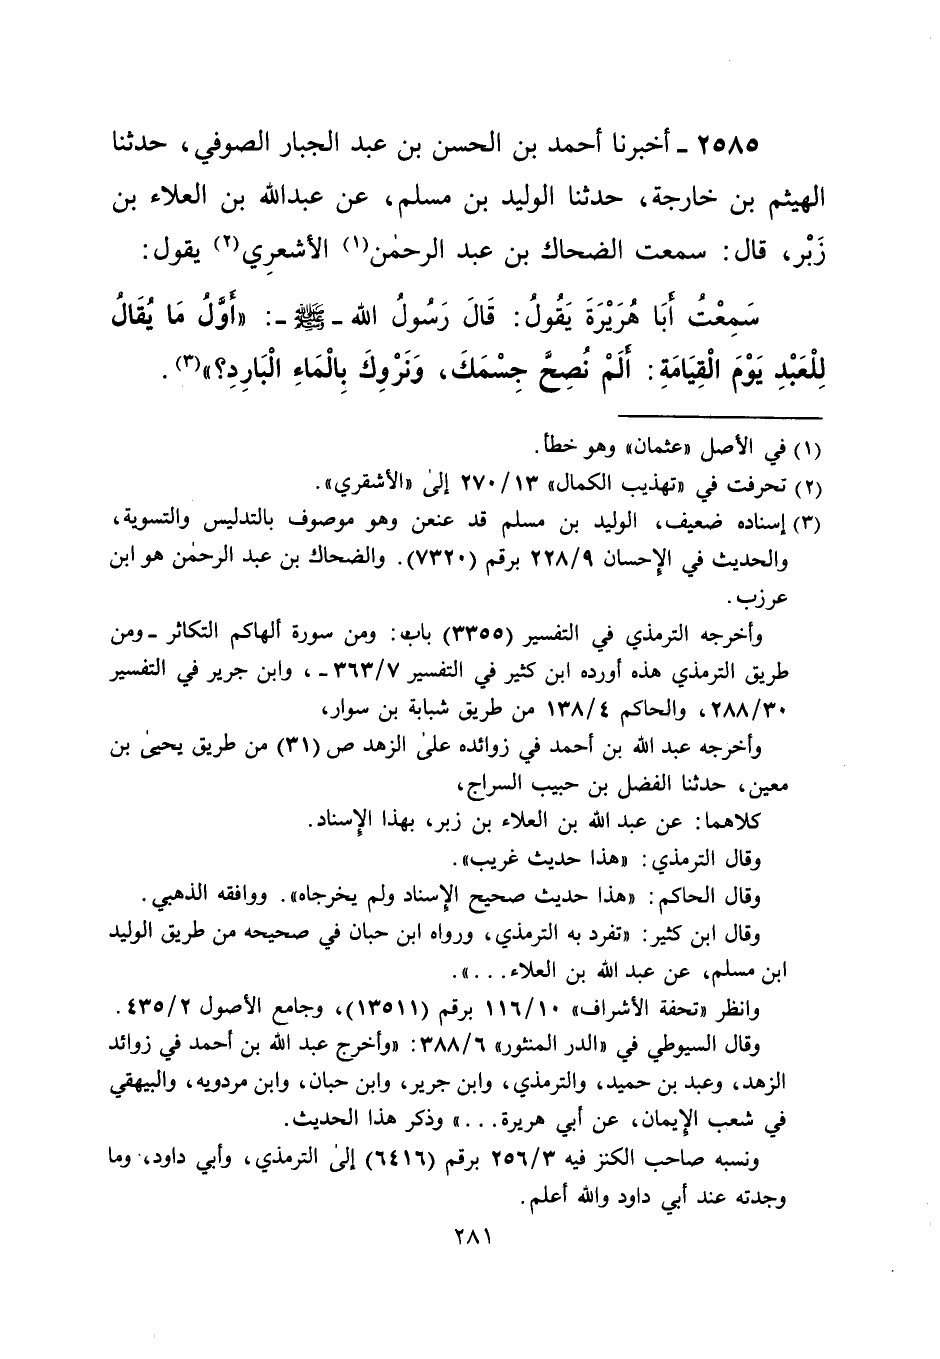 ٢٥٨٥ ـ أخبرنا أحمد بن الحسن بن عبد الجبار الصوفي، حدثنا
الهيثم بن خارجة، حدثنا الوليد بن مسلم، عن عبدالله بن العلاء بن
زَبْر، قال: سمعت الضحاك بن عبد الرحمٰن(١) الأشعري(٢) يقول:
سَمِعْتُ أَبَا هُرَيْرَةَ يَقُولُ: قَالَ رَسُولُ الله ـ ﷺ ـ: «أَوَّلُ مَا يُقَالُ
لِلْعَبْدِ يَوْمَ الْقِيَامَةِ: أَلَمْ نُصِحَّ جِسْمَكَ، وَنَرْوِكَ بِالْمَاءِ الْبَارِدِ؟»(٣).
(١) في الأصل «عثمان» وهو خطأ.
(٢) تحرفت في «تهذيب الكمال» ٢٧٠/١٣ إلىٰ «الأشقري».
(٣) إسناده ضعيف، الوليد بن مسلم قد عنعن وهو موصوف بالتدليس والتسوية،
والحديث في الإحسان ٢٢٨/٩ برقم (٧٣٢٠). والضحاك بن عبد الرحمٰن هو ابن
عرزب.
وأخرجه الترمذي في التفسير (٣٣٥٥) باب: ومن سورة ألهاكم التكاثر ـ ومن
طريق الترمذي هذه أورده ابن كثير في التفسير ٣٦٣/٧ ـ، وابن جرير في التفسير
٢٨٨/٣٠، والحاكم ١٣٨/٤ من طريق شبابة بن سوار،
وأخرجه عبد الله بن أحمد في زوائده علىٰ الزهد ص (٣١) من طريق يحيىٰ بن
معين، حدثنا الفضل بن حبيب السراج،
كلاهما: عن عبد الله بن العلاء بن زبر، بهذا الإسناد.
وقال الترمذي: «هذا حديث غريب».
وقال الحاكم: «هذا حديث صحيح الإسناد ولم يخرجاه». ووافقه الذهبي.
وقال ابن كثير: «تفرد به الترمذي، ورواه ابن حبان في صحيحه من طريق الوليد
ابن مسلم، عن عبد الله بن العلاء...».
وانظر «تحفة الأشراف» ١١٦/١٠ برقم (١٣٥١١)، وجامع الأصول ٤٣٥/٢.
وقال السيوطي في «الدر المنثور» ٣٨٨/٦: «وأخرج عبد الله بن أحمد في زوائد
الزهد، وعبد بن حميد، والترمذي، وابن جرير، وابن حبان، وابن مردويه، والبيهقي
في شعب الإيمان، عن أبي هريرة...» وذكر هذا الحديث.
ونسبه صاحب الكنز فيه ٢٥٦/٣ برقم (٦٤١٦) إلىٰ الترمذي، وأبي داود، وما
وجدته عند أبي داود والله أعلم.
٢٨١